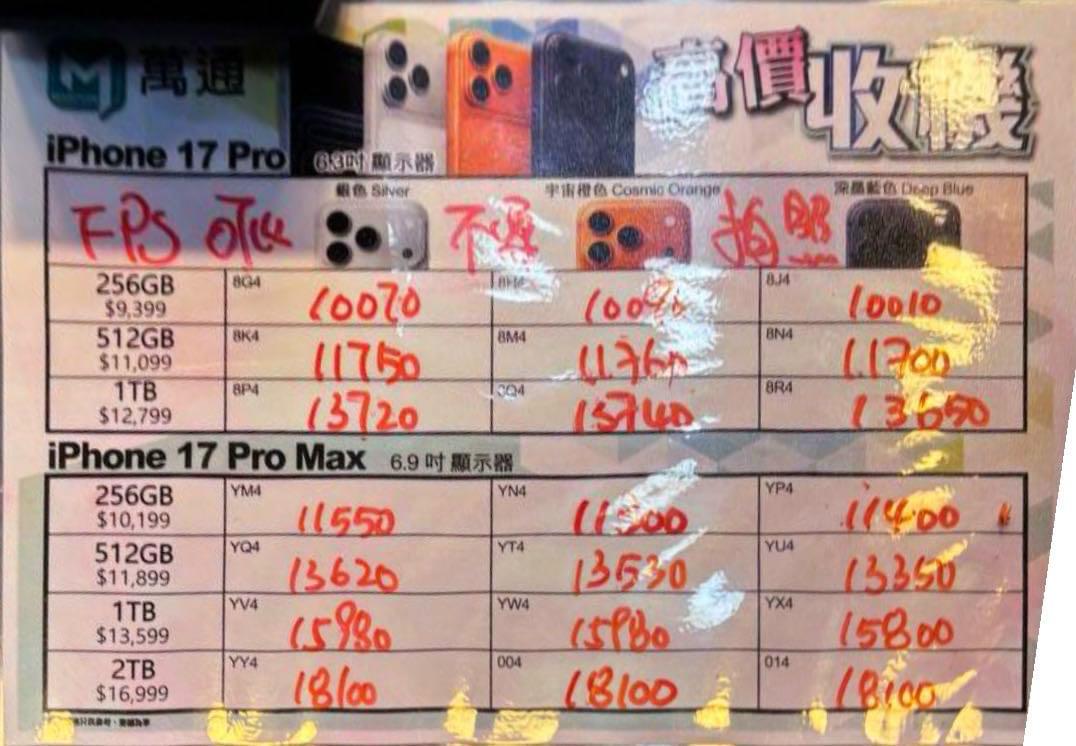 萬通
高價收機
iPhone 17 Pro 6.3吋 顯示器
銀色 Silver 宇宙橙色 Cosmic Orange 深藍色 Deep Blue
FPS 可以 不準 拍照
256GB 8G4 10070 10010 8J4
$9,399
512GB 8K4 11750 8M4 11760 8N4 11700
$11,099
1TB 8P4 13720 13740 8R4 13650
$12,799
iPhone 17 Pro Max 6.9 吋 顯示器
256GB YM4 11550 YN4 11500 YP4 11400
$10,199
512GB YQ4 13620 YT4 13530 YU4 13350
$11,899
1TB YV4 15980 YW4 15980 YX4 15800
$13,599
2TB YY4 18100 004 18100 014 18100
$16,999